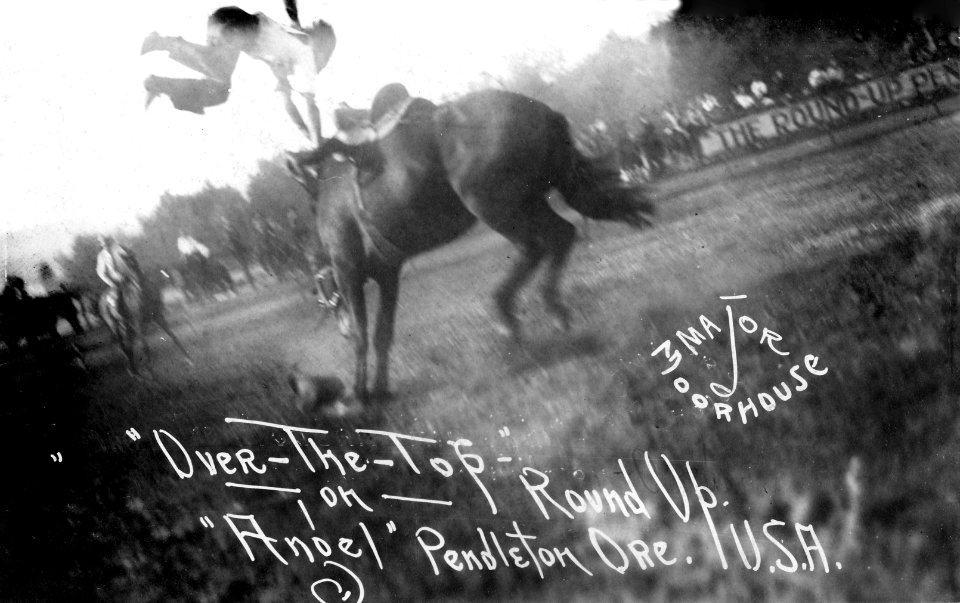 THE ROUND-UP PEN
MAJOR
MOORHOUSE
"Over-The-Top"-
on
Round Up.
"Angel" Pendleton Ore. U.S.A.